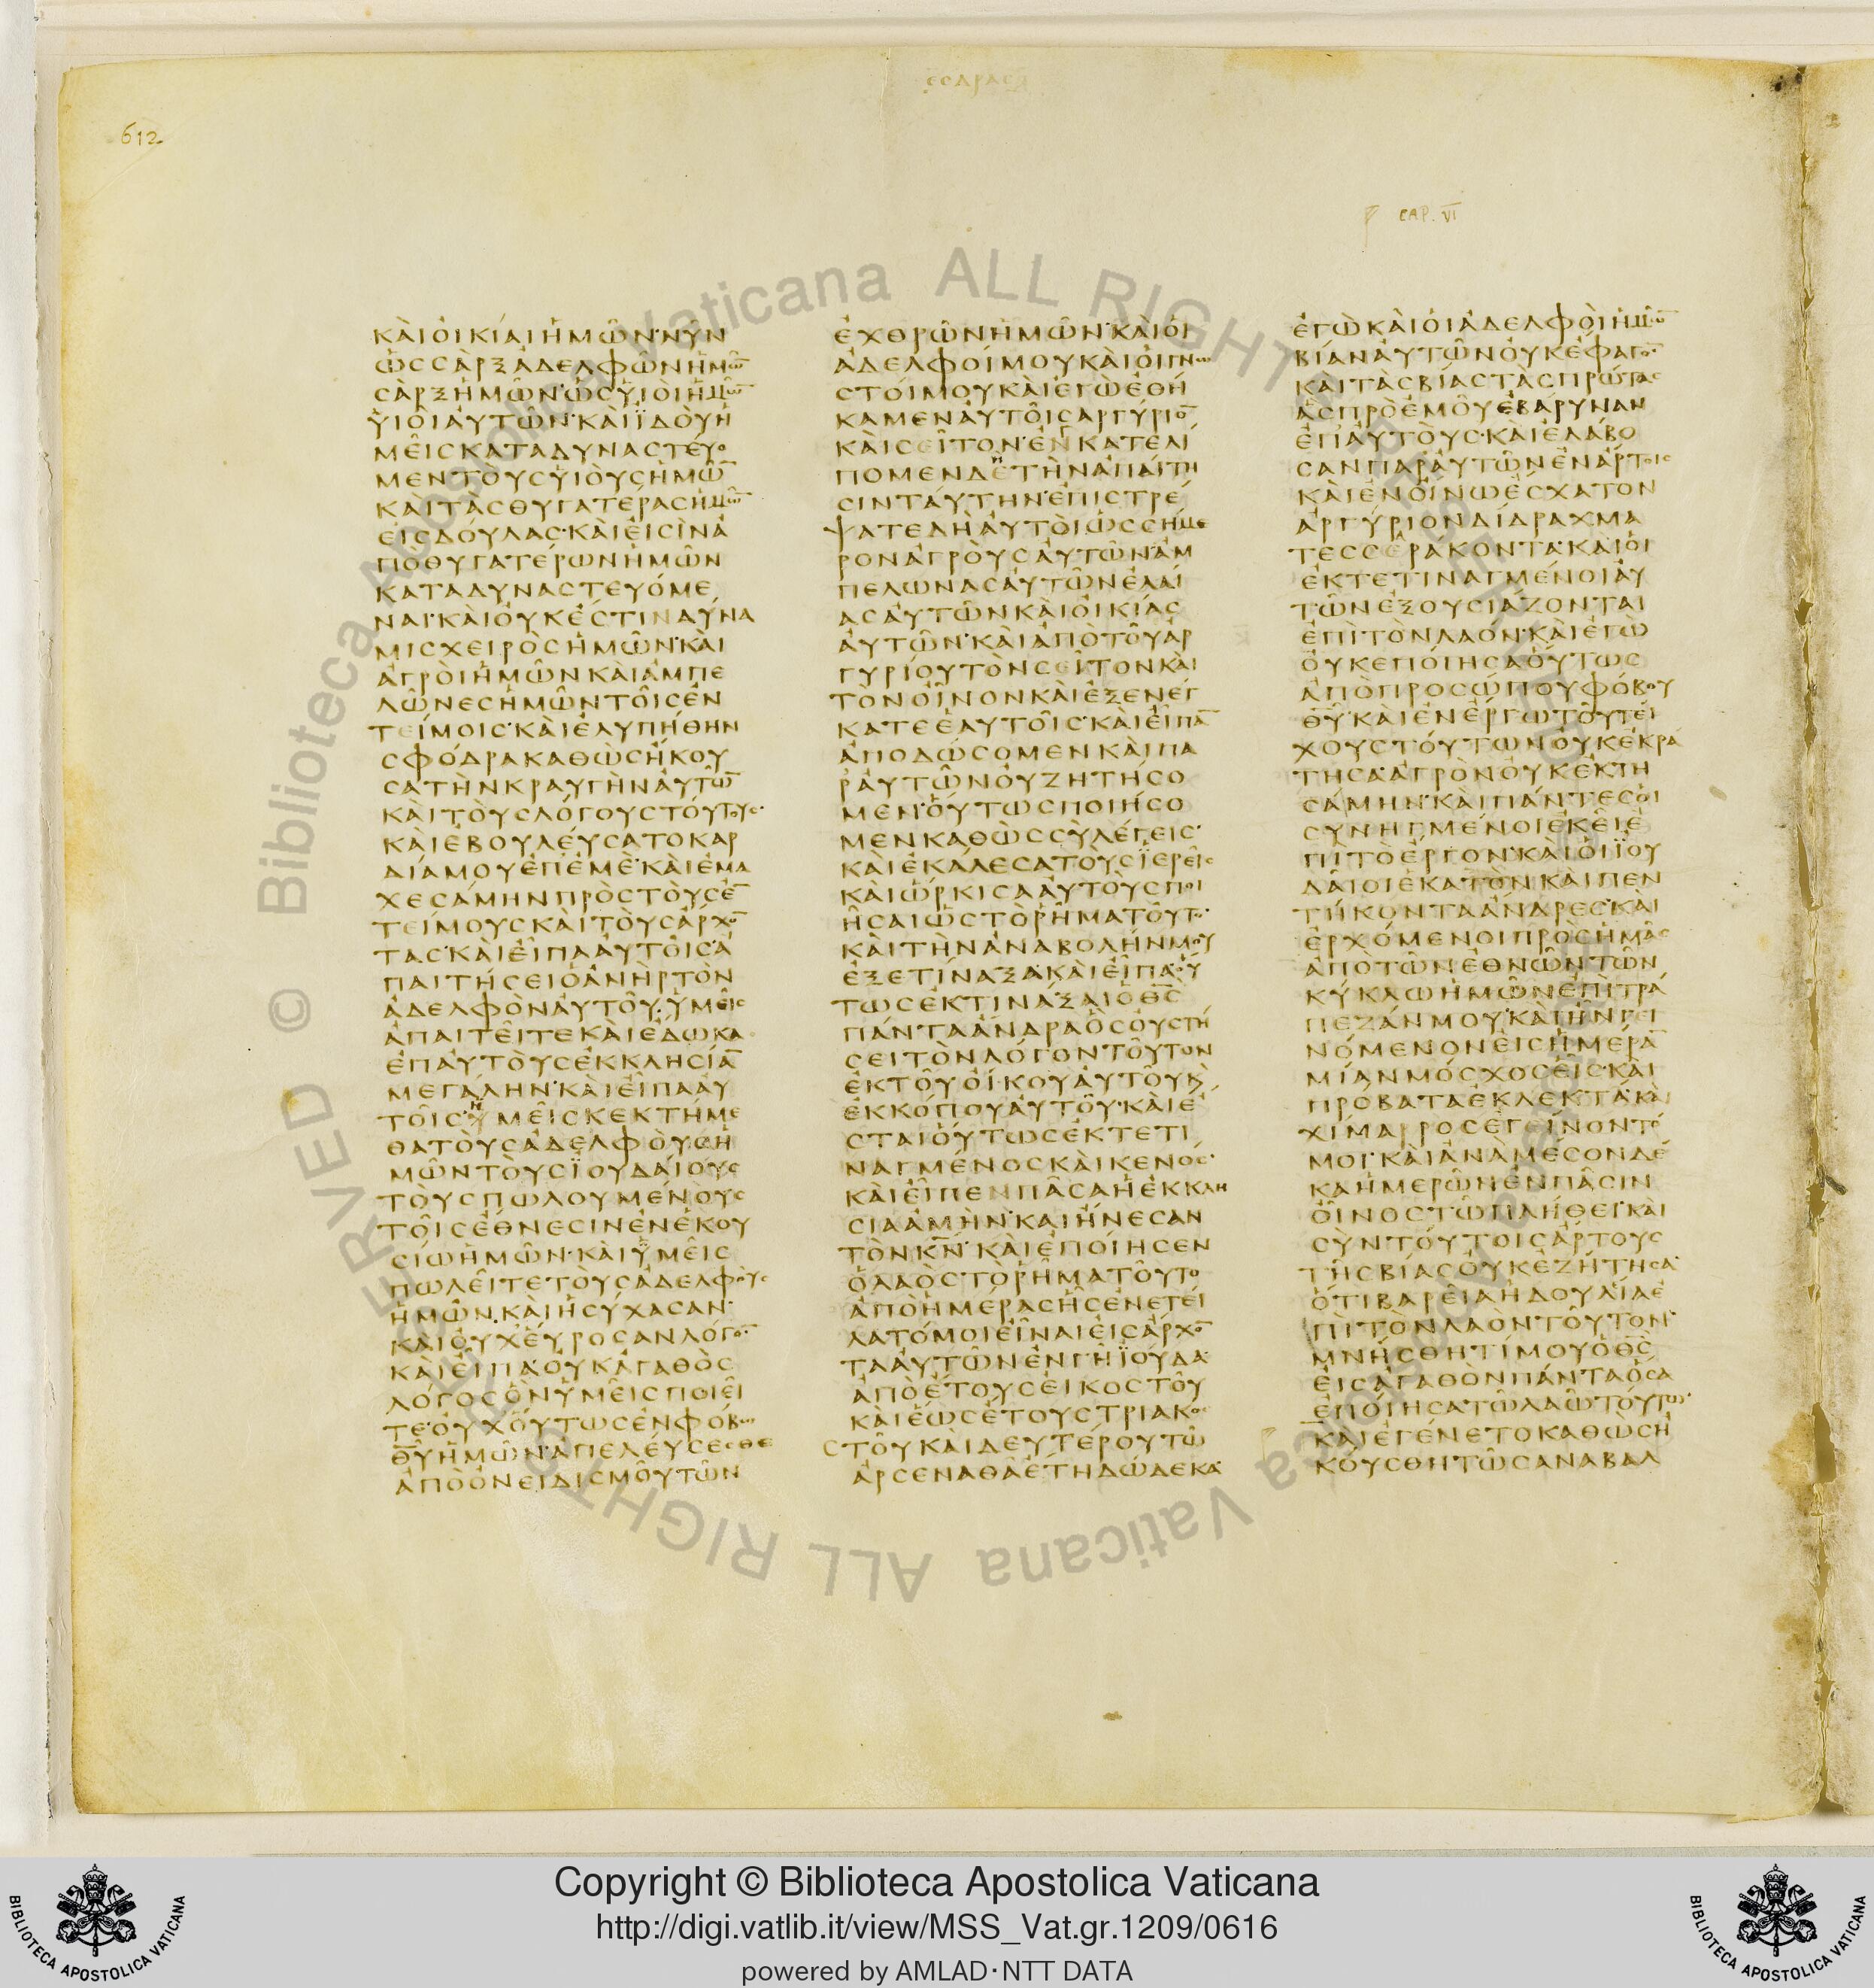 612
ΕϹΔΡΑϹ Β
CAP. VI
ΚΑΙΟΙΚΙΑΙΗΜΩΝ·ΝΥΝ
ΩϹϹΑΡΞΑΔΕΛΦΩΝΗΜΩ̅
ϹΑΡΞΗΜΩΝ·ΩϹΥΙΟΙΗΜΩ̅
ΥΙΟΙΑΥΤΩΝ·ΚΑΙΪΔΟΥΗ
ΜΕΙϹΚΑΤΑΔΥΝΑϹΤΕΥΟ
ΜΕΝΤΟΥϹΥΙΟΥϹΗΜΩ̅
ΚΑΙΤΑϹΘΥΓΑΤΕΡΑϹΗΜΩ̅
ΕΙϹΔΟΥΛΑϹ·ΚΑΙΕΙϹΙΝΑ
ΠΟΘΥΓΑΤΕΡΩΝΗΜΩΝ
ΚΑΤΑΔΥΝΑϹΤΕΥΟΜΕ
ΝΑΙ·ΚΑΙΟΥΚΕϹΤΙΝΔΥΝΑ
ΜΙϹΧΕΙΡΟϹΗΜΩΝ·ΚΑΙ
ΑΓΡΟΙΗΜΩΝΚΑΙΑΜΠΕ
ΛΩΝΕϹΗΜΩΝΤΟΙϹΕΝ
ΤΕΙΜΟΙϹ·ΚΑΙΕΛΥΠΗΘΗΝ
ϹΦΟΔΡΑΚΑΘΩϹΗΚΟΥ
ϹΑΤΗΝΚΡΑΥΓΗΝΑΥΤΩ̅
ΚΑΙΤΟΥϹΛΟΓΟΥϹΤΟΥΤΟΥϹ·
ΚΑΙΕΒΟΥΛΕΥϹΑΤΟΚΑΡ
ΔΙΑΜΟΥΕΠΕΜΕ·ΚΑΙΕΜΑ
ΧΕϹΑΜΗΝΠΡΟϹΤΟΥϹΕ̅
ΤΕΙΜΟΥϹΚΑΙΤΟΥϹΑΡΧΟ̅
ΤΑϹ·ΚΑΙΕΙΠΑΑΥΤΟΙϹ·Α
ΠΑΙΤΗϹΕΙΟΑΝΗΡΤΟΝ
ΑΔΕΛΦΟΝΑΥΤΟΥ·ΥΜΕΙϹ
ΑΠΑΙΤΕΙΤΕΚΑΙΕΔΩΚΑ
ΕΠΑΥΤΟΥϹΕΚΚΛΗϹΙΑ̅
ΜΕΓΑΛΗΝ·ΚΑΙΕΙΠΑΑΥ
ΤΟΙϹ·ΥΜΕΙϹΚΕΚΤΗΜΕ
ΘΑΤΟΥϹΑΔΕΛΦΟΥϹΗ
ΜΩΝΤΟΥϹΪΟΥΔΑΙΟΥϹ
ΤΟΥϹΠΩΛΟΥΜΕΝΟΥϹ
ΤΟΙϹΕΘΝΕϹΙΝΕΝΕΚΟΥ
ϹΙΩΗΜΩΝ·ΚΑΙΥΜΕΙϹ
ΠΩΛΕΙΤΕΤΟΥϹΑΔΕΛΦΟΥϹ
ΗΜΩΝ·ΚΑΙΗϹΥΧΑϹΑΝ·
ΚΑΙΟΥΧΕΥΡΟϹΑΝΛΟΓΟ̅·
ΚΑΙΕΙΠΑ·ΟΥΚΑΓΑΘΟϹ
ΛΟΓΟϹΟΝΥΜΕΙϹΠΟΙΕΙ
ΤΕ·ΟΥΧΟΥΤΩϹΕΝΦΟΒΩ
Θ̅Υ̅ΗΜΩΝ·ΑΠΕΛΕΥϹΕϹΘΕ
ΑΠΟΟΝΕΙΔΙϹΜΟΥΤΩΝ
ΕΧΘΡΩΝΗΜΩΝ·ΚΑΙΟΙ
ΑΔΕΛΦΟΙΜΟΥΚΑΙΟΙΓΝΩ
ϹΤΟΙΜΟΥΚΑΙΕΓΩΕΘΗ
ΚΑΜΕΝΑΥΤΟΙϹΑΡΓΥΡΙΟ̅
ΚΑΙϹΕΙΤΟΝ·ΕΝΚΑΤΕΛΙ
ΠΟΜΕΝΔΕΤΗΝΑΠΑΙΤΗ
ϹΙΝΤΑΥΤΗΝ·ΕΠΙϹΤΡΕ
ΨΑΤΕΔΗΑΥΤΟΙΩϹϹΗΜΕ
ΡΟΝΑΓΡΟΥϹΑΥΤΩΝΑΜ
ΠΕΛΩΝΑϹΑΥΤΩΝΕΛΑΙ
ΑϹΑΥΤΩΝΚΑΙΟΙΚΙΑϹ
ΑΥΤΩΝ·ΚΑΙΑΠΟΤΟΥΑΡ
ΓΥΡΙΟΥΤΟΝϹΕΙΤΟΝΚΑΙ
ΤΟΝΟΙΝΟΝΚΑΙΕΞΕΝΕΓ
ΚΑΤΕΕΑΥΤΟΙϹ·ΚΑΙΕΙΠΑ̅
ΑΠΟΔΩϹΟΜΕΝΚΑΙΠΑ
ΡΑΥΤΩΝΟΥΖΗΤΗϹΟ
ΜΕΝ·ΟΥΤΩϹΠΟΙΗϹΟ
ΜΕΝΚΑΘΩϹϹΥΛΕΓΕΙϹ·
ΚΑΙΕΚΑΛΕϹΑΤΟΥϹΪΕΡΕΙϹ
ΚΑΙΩΡΚΙϹΑΑΥΤΟΥϹΠΟΙ
ΗϹΑΙΩϹΤΟΡΗΜΑΤΟΥΤΟ·
ΚΑΙΤΗΝΑΝΑΒΟΛΗΝΜΟΥ
ΕΞΕΤΙΝΑΞΑ·ΚΑΙΕΙΠΑ·ΟΥ
ΤΩϹΕΚΤΙΝΑΞΑΙΟΘ̅Ϲ̅
ΠΑΝΤΑΑΝΔΡΑΟϹΟΥϹΤΗ
ϹΕΙΤΟΝΛΟΓΟΝΤΟΥΤΟΝ
ΕΚΤΟΥΟΙΚΟΥΑΥΤΟΥΚ̀
ΕΚΚΟΠΟΥΑΥΤΟΥ·ΚΑΙΕ
ϹΤΑΙΟΥΤΩϹΕΚΤΕΤΙ
ΝΑΓΜΕΝΟϹΚΑΙΚΕΝΟϹ·
ΚΑΙΕΙΠΕΝΠΑϹΑΗΕΚΚΛΗ
ϹΙΑΑΜΗΝ·ΚΑΙΗΝΕϹΑΝ
ΤΟΝΚ̅Ν̅·ΚΑΙΕΠΟΙΗϹΕΝ
ΟΛΑΟϹΤΟΡΗΜΑΤΟΥΤΟ
ΑΠΟΗΜΕΡΑϹΗϹΕΝΕΤΕΙ
ΛΑΤΟΜΟΙΕΙΝΑΙΕΙϹΑΡΧΟ̅
ΤΑΑΥΤΩΝΕΝΓΗΪΟΥΔΑ·
ΑΠΟΕΤΟΥϹΕΙΚΟϹΤΟΥ
ΚΑΙΕΩϹΕΤΟΥϹΤΡΙΑΚΟ
ϹΤΟΥΚΑΙΔΕΥΤΕΡΟΥΤΩ
ΑΡϹΕΝΑΘΑΕΤΗΔΩΔΕΚΑ·
ΕΓΩΚΑΙΟΙΑΔΕΛΦΟΙΗΜΩ̅
ΒΙΑΝΑΥΤΩΝΟΥΚΕΦΑΓΟ̅·
ΚΑΙΤΑϹΒΙΑϹΤΑϹΠΡΩΤΑϹ
ΑϹΠΡΟΕΜΟΥΕΒΑΡΥΝΑΝ
ΕΠΑΥΤΟΥϹ·ΚΑΙΕΛΑΒΟ
ϹΑΝΠΑΡΑΥΤΩΝΕΝΑΡΤΟΙϹ
ΚΑΙΕΝΟΙΝΩΕϹΧΑΤΟΝ
ΑΡΓΥΡΙΟΝΔΙΔΡΑΧΜΑ
ΤΕϹϹΕΡΑΚΟΝΤΑ·ΚΑΙΟΙ
ΕΚΤΕΤΙΝΑΓΜΕΝΟΙΑΥ
ΤΩΝΕΞΟΥϹΙΑΖΟΝΤΑΙ
ΕΠΙΤΟΝΛΑΟΝ·ΚΑΙΕΓΩ
ΟΥΚΕΠΟΙΗϹΑΟΥΤΩϹ
ΑΠΟΠΡΟϹΩΠΟΥΦΟΒΟΥ
Θ̅Υ̅·ΚΑΙΕΝΕΡΓΩΤΟΥΤΕΙ
ΧΟΥϹΤΟΥΤΩΝΟΥΚΕΚΡΑ
ΤΗϹΑ·ΑΓΡΟΝΟΥΚΕΚΤΗ
ϹΑΜΗΝ·ΚΑΙΠΑΝΤΕϹΟΙ
ϹΥΝΗΓΜΕΝΟΙΕΚΕΙΕ
ΠΙΤΟΕΡΓΟΝ·ΚΑΙΟΙΪΟΥ
ΔΑΙΟΙΕΚΑΤΟΝΚΑΙΠΕΝ
ΤΗΚΟΝΤΑΑΝΔΡΕϹ·ΚΑΙ
ΕΡΧΟΜΕΝΟΙΠΡΟϹΗΜΑϹ
ΑΠΟΤΩΝΕΘΝΩΝΤΩΝ
ΚΥΚΛΩΗΜΩΝΕΠΙΤΡΑ
ΠΕΖΑΝΜΟΥ·ΚΑΙΗΝΓΕΙ
ΝΟΜΕΝΟΝΕΙϹΗΜΕΡΑ̅
ΜΙΑΝΜΟϹΧΟϹΕΙϹ·ΚΑΙ
ΠΡΟΒΑΤΑΕΚΛΕΚΤΑ·ΚΑΙ
ΧΙΜΑΡΡΟϹΕΓΕΙΝΟΝΤΟ
ΜΟΙ·ΚΑΙΑΝΑΜΕϹΟΝΔΕ
ΚΑΗΜΕΡΩΝΕΝΠΑϹΙΝ
ΟΙΝΟϹΤΩΠΛΗΘΕΙ·ΚΑΙ
ϹΥΝΤΟΥΤΟΙϹΑΡΤΟΥϹ
ΤΗϹΒΙΑϹΟΥΚΕΖΗΤΗϹΑ·
ΟΤΙΒΑΡΕΙΑΗΔΟΥΛΙΑΕ
ΠΙΤΟΝΛΑΟΝΤΟΥΤΟΝ·
ΜΝΗϹΘΗΤΙΜΟΥΟΘ̅Ϲ̅
ΕΙϹΑΓΑΘΟΝΠΑΝΤΑΟϹΑ
ΕΠΟΙΗϹΑΤΩΛΑΩΤΟΥΤΩ·
ΚΑΙΕΓΕΝΕΤΟΚΑΘΩϹΗ
ΚΟΥϹΘΗΤΩϹΑΝΑΒΑΛ
Copyright © Biblioteca Apostolica Vaticana
http://digi.vatlib.it/view/MSS_Vat.gr.1209/0616
powered by AMLAD·NTT DATA
BIBLIOTECA APOSTOLICA VATICANA
BIBLIOTECA APOSTOLICA VATICANA
© Biblioteca Apostolica Vaticana ALL RIGHTS RESERVED